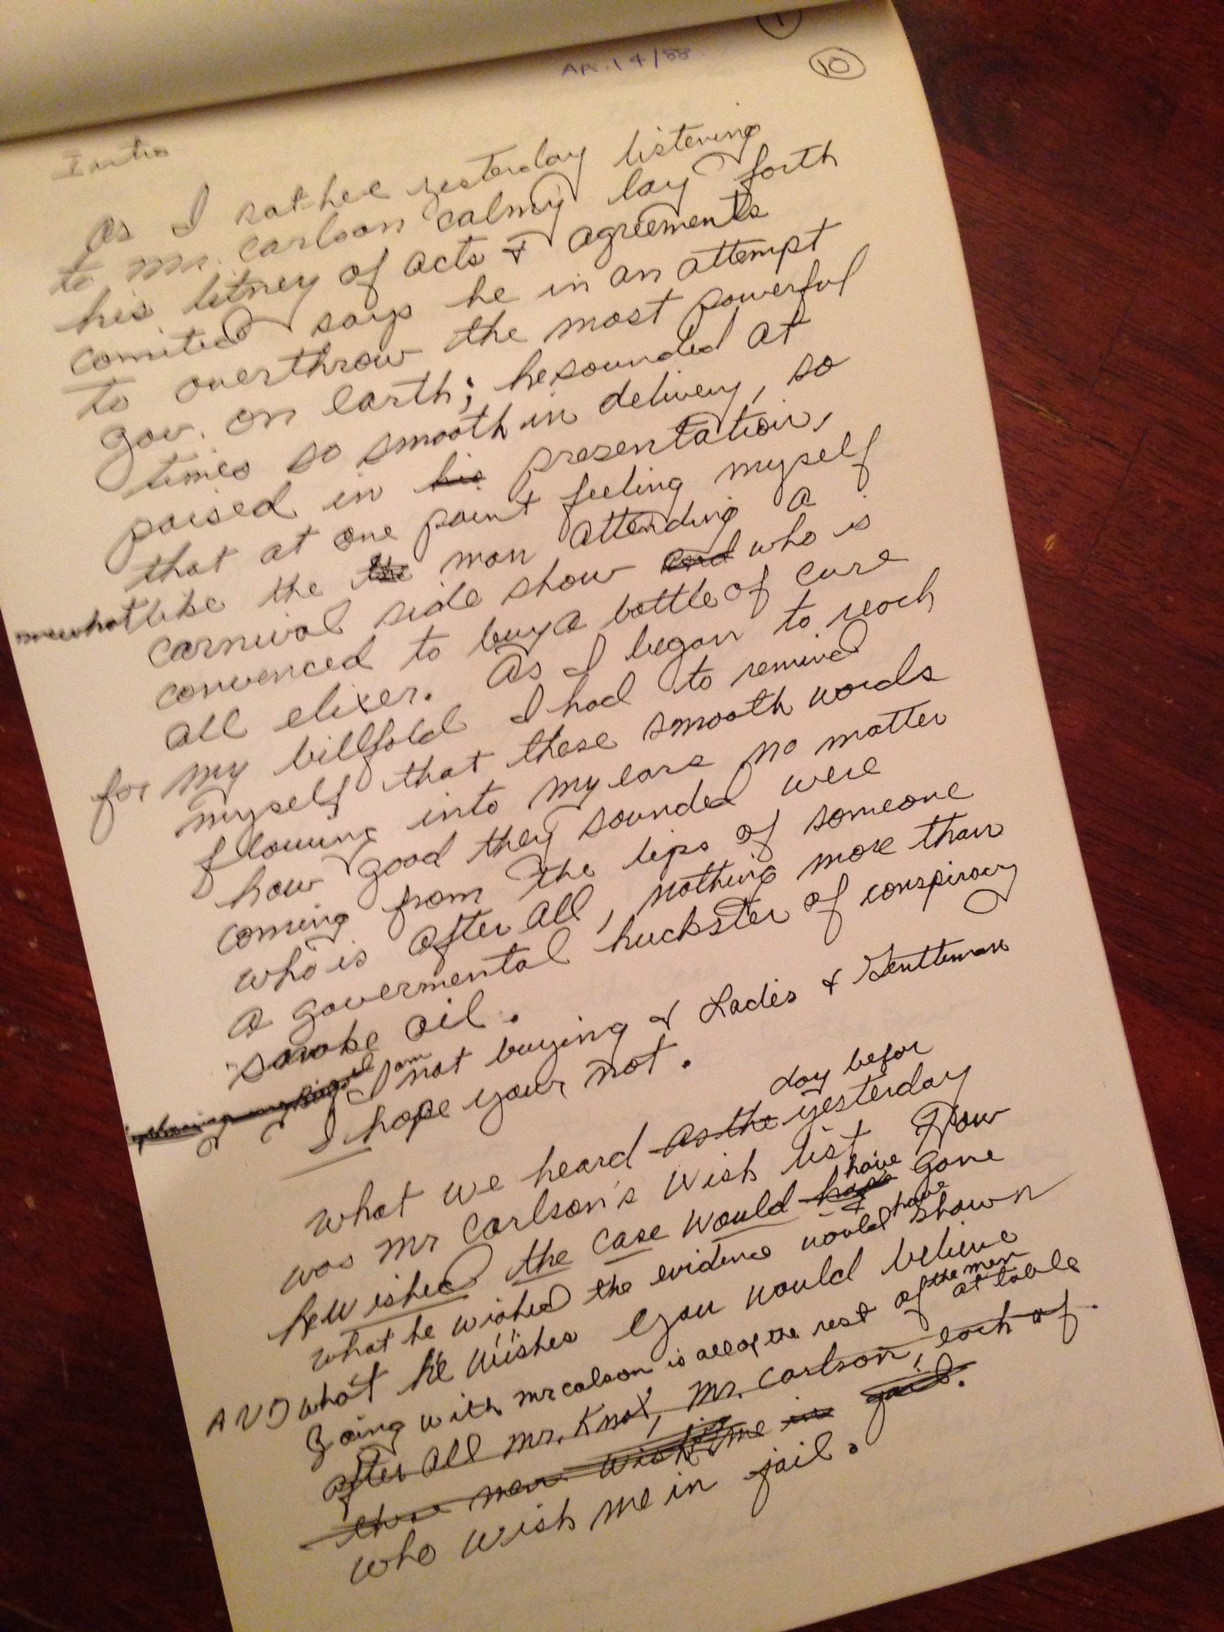 1
AP. 14/88
10
Intro
As I sat here yesterday listening
to Mr. Carlson calmly lay forth
his litney of acts & agreements
comitted says he in an attempt
to overthrow the most powerful
gov. on earth; he sounded at
times so smooth in delivery, so
poised in his presentation,
that at one point feeling myself
somewhat like the the man attending a
carnival side show and who is
convenced to buy a bottle of cure
all elixer. As I began to reach
for my billfold I had to remind
myself that these smooth words
flowing into my ears no matter
how good they sounded were
coming from the lips of someone
who is after all, nothing more than
a govermental huckster of conspiracy
snake oil.
I am not buying & Ladies & Gentleman
I hope your not.
day befor
What we heard as the yesterday
was Mr Carlson's wish list How
he wished the case would have have gone
what he wished the evidence would have shown
AND what he wishes you would believe
Going with Mr Calson is all of the rest of the men at table
after all Mr. Knox, Mr. Carlson, each of
these men wish me in jail.
who wish me in jail.